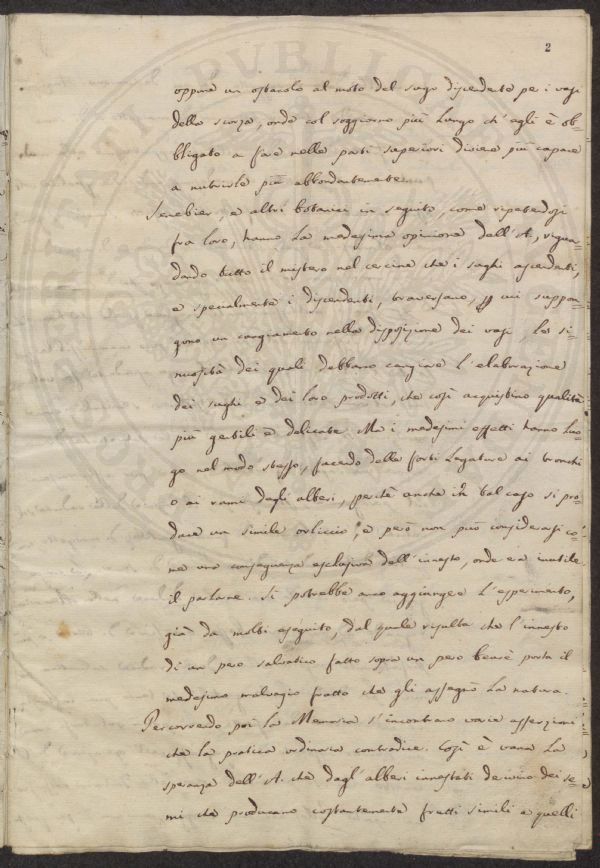 2
oppure un ostacolo al moto del sugo discendente pe i vasi
della scorza, onde col soggiorno più lungo ch'egli è ob=
bligato a fare nelle parti superiori divien più capace
a nutrirle più abbondantemente.
Senebier, e altri botanici in seguito, come ripetendosi
fra loro, hanno la medesima opinione dell'A., riguar=
dando tutto il mistero nel cercine che i sughi ascendenti,
e specialmente i discendenti, traversano, cui suppon=
gono un cangiamento nella disposizione dei vasi, la si=
nuosità dei quali debbano cangiare l'elaborazione
dei sughi e dei loro prodotti, che così acquistino qualità
più gentili e delicate. Ma i medesimi effetti hanno luo=
go nel modo stesso, facendo delle forti legature ai tronchi
o ai rami degli alberi, perchè anche in tal caso si pro=
duce un simile orliccio, e però non può considerarsi co=
me una conseguenza esclusiva dell'innesto, onde era inutile
il parlarne. Si potrebbe anco aggiungere l'esperimento,
già da molti eseguito, dal quale risulta che l'innesto
di un pero salvatico fatto sopra un pero bencè porta il
medesimo malvagio frutto che gli assegnò la natura.
Percorrendo poi la Memoria s'incontrano varie asserzioni
che la pratica ordinaria contradice. Così è vana la
speranza dell'A. che dagl'alberi innestati derivino dei se=
mi che producano costantemente frutti simili a quelli